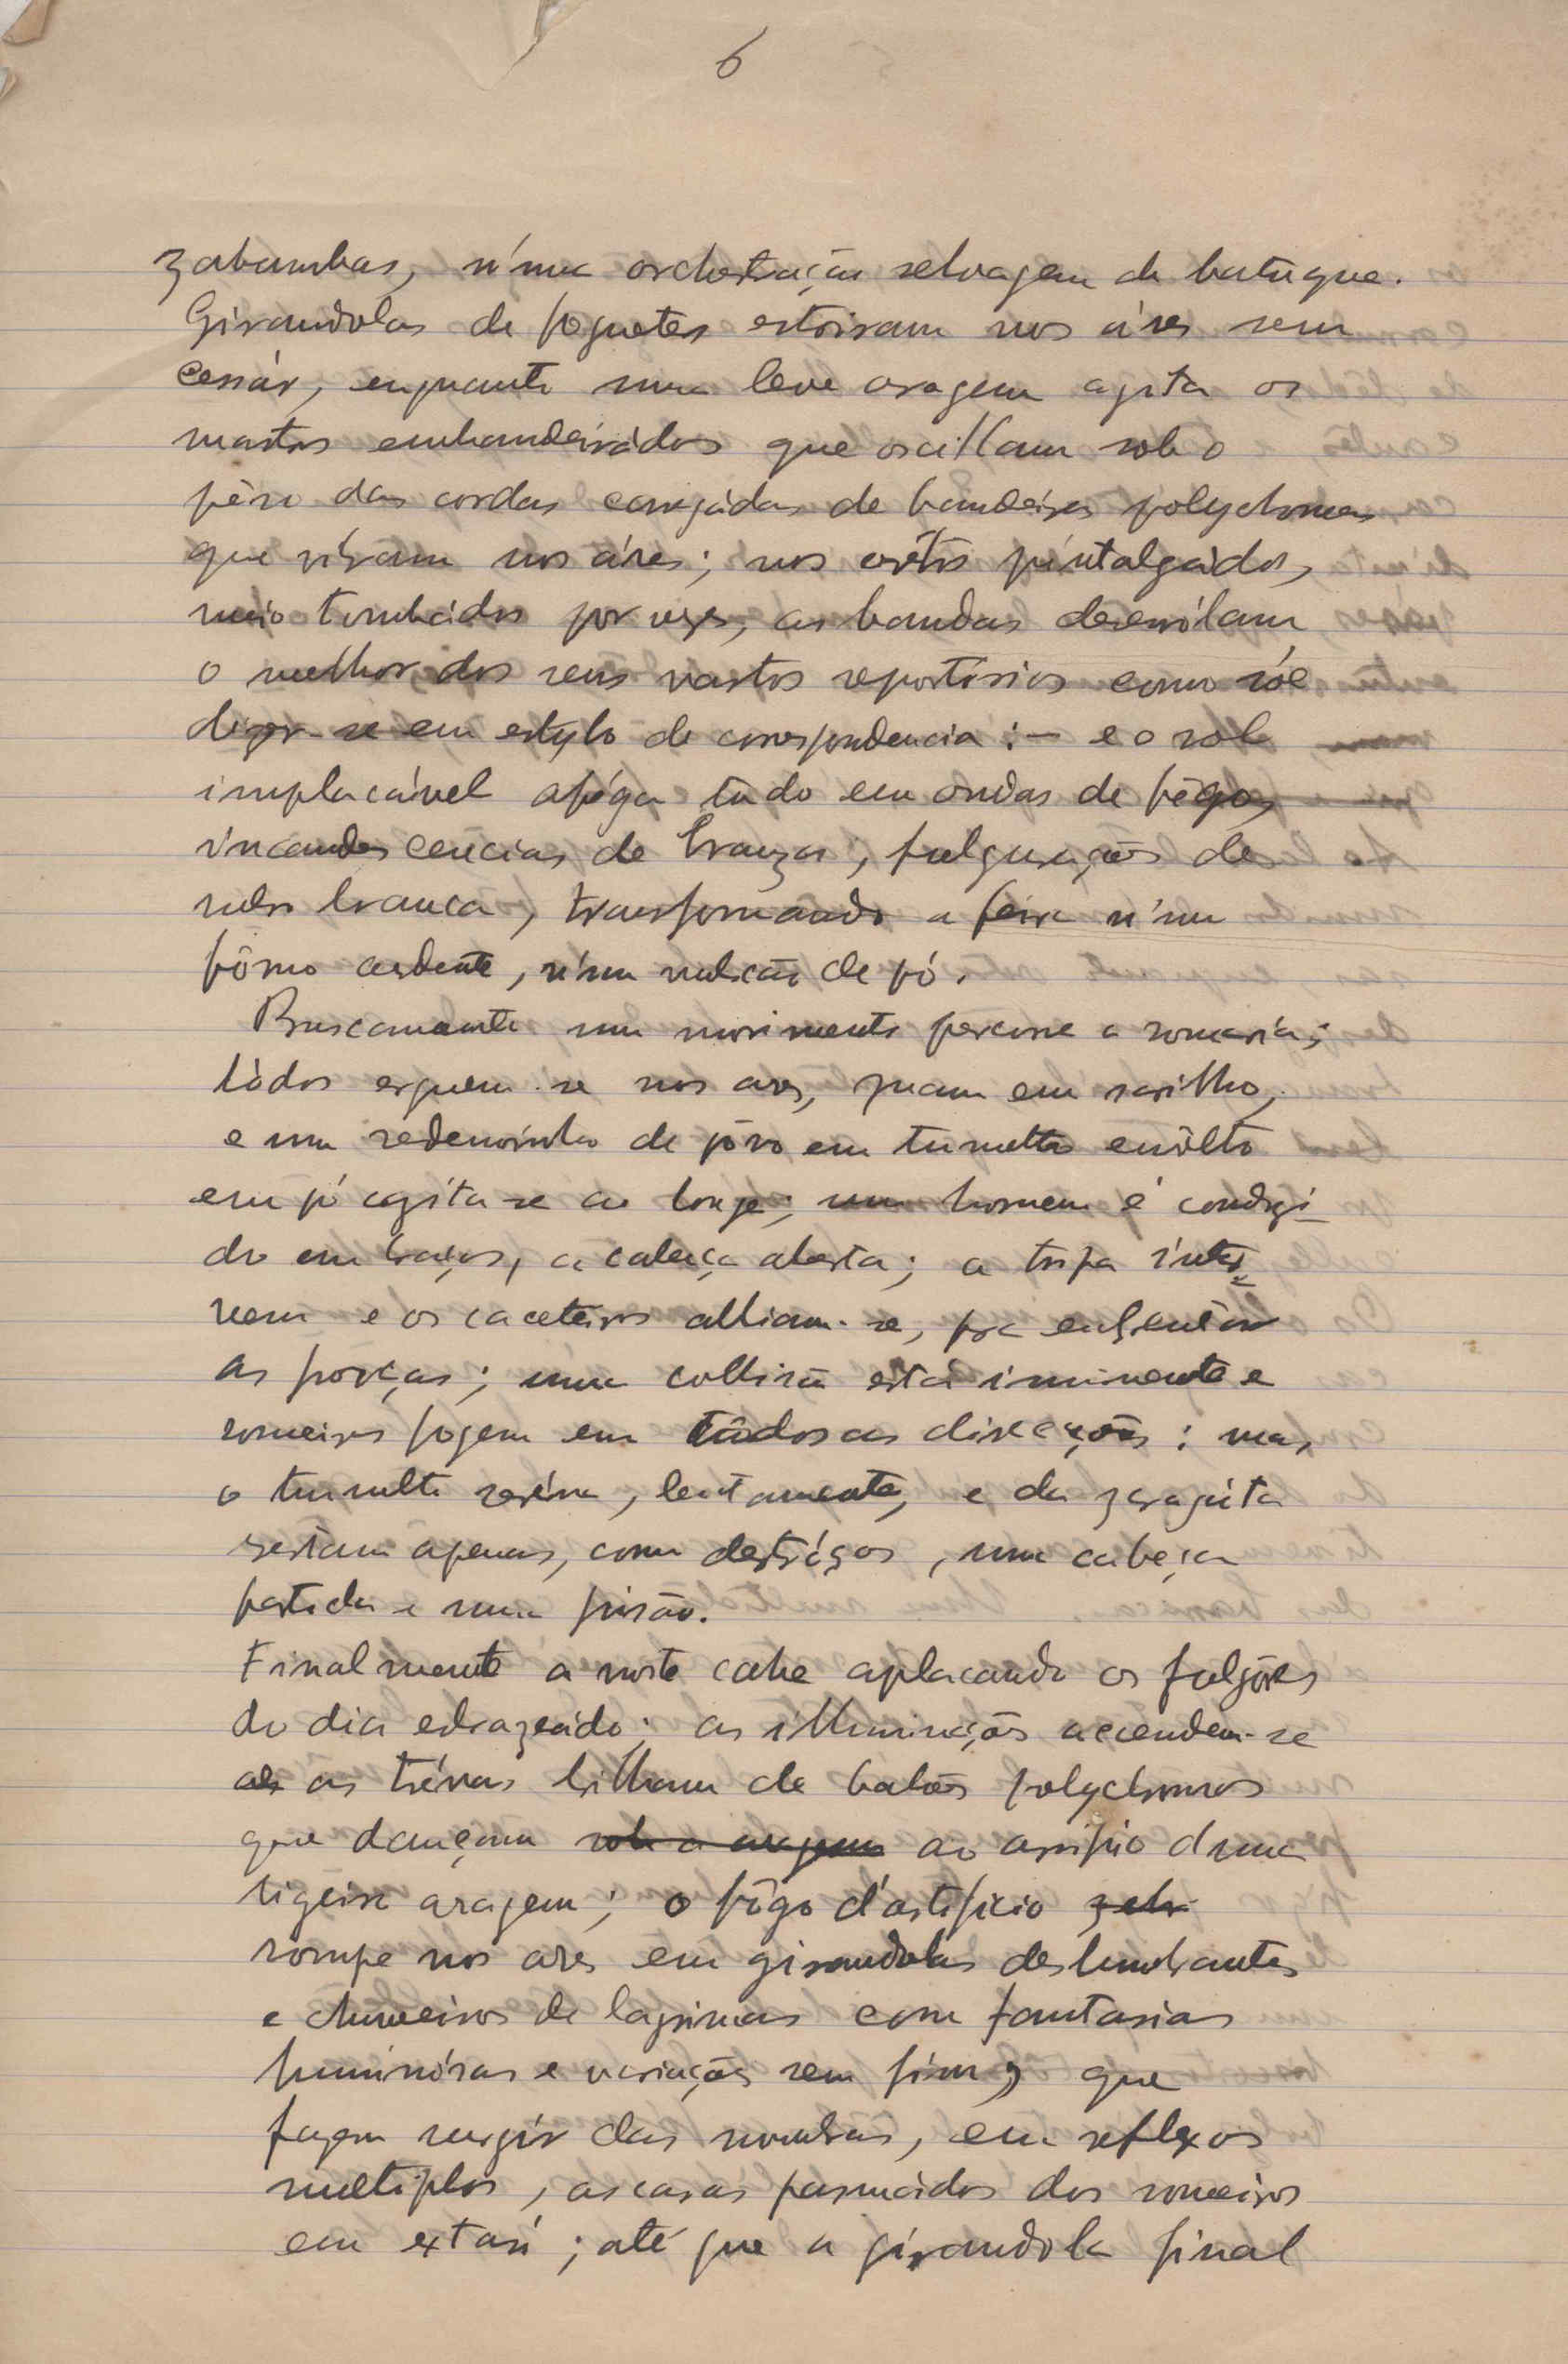 6
zabumbas, n'uma orchestração selvagem de batuque.
Girandolas de foguetes estoiram nos áres sem
cessár, enquanto uma leve aragem agita os
mastros embandeirádos que oscillam sob o
pêso das cordas carregádas de bandeiras polychromas
que víram nos áres; nos corêtos pintalgádos,
meio tombádos por vezes, as bandas desenrólam
o melhor dos seus vastos reportórios como sóe
dizer-se em estylo de correspondencia :- e o sol
implacável afóga tudo em ondas de fôgo,
incandescencias de braza, fulgurações de
rubro branca, transformando a feira n'um
fôrno ardente, n'um vulcão de pó.
Bruscamente um movimento percorre a romaría;
tôdos erguem-se nos ares, giram em sarilho,
e um redemoinho de pôvo em tumulto envôlto
em pó agita-se ao longe; um homem é condusi-
do em braços, a cabeça aberta; a tropa inter-
vem e os caceteiros alliam-se, pra enfrentár
as fôrças; uma collisão está imminente e
romeiros fogem em tôdos as direcções : mas,
o tumulto serêna, lentamente, e da zaragáta
restam apenas, como destróços, uma cabeça
partida e uma prisão.
Finalmente a noite cahe aplacando os fulgôres
do dia esbrazeádo; as illuminações accendem-se
as trévas brilham de balões polychromos
que dançam sob a aragem ao arripio d'uma
ligeira aragem; o fôgo d'artificio
rompe nos ares em girandolas deslumbrantes
e chuveiros de lagrimas com fantasias
luminósas e variações sem fim, que
fazem surgir das sombras, em reflexos
multiplos, as caras pasmádas dos romeiros
em extasi ; até que a girandola final